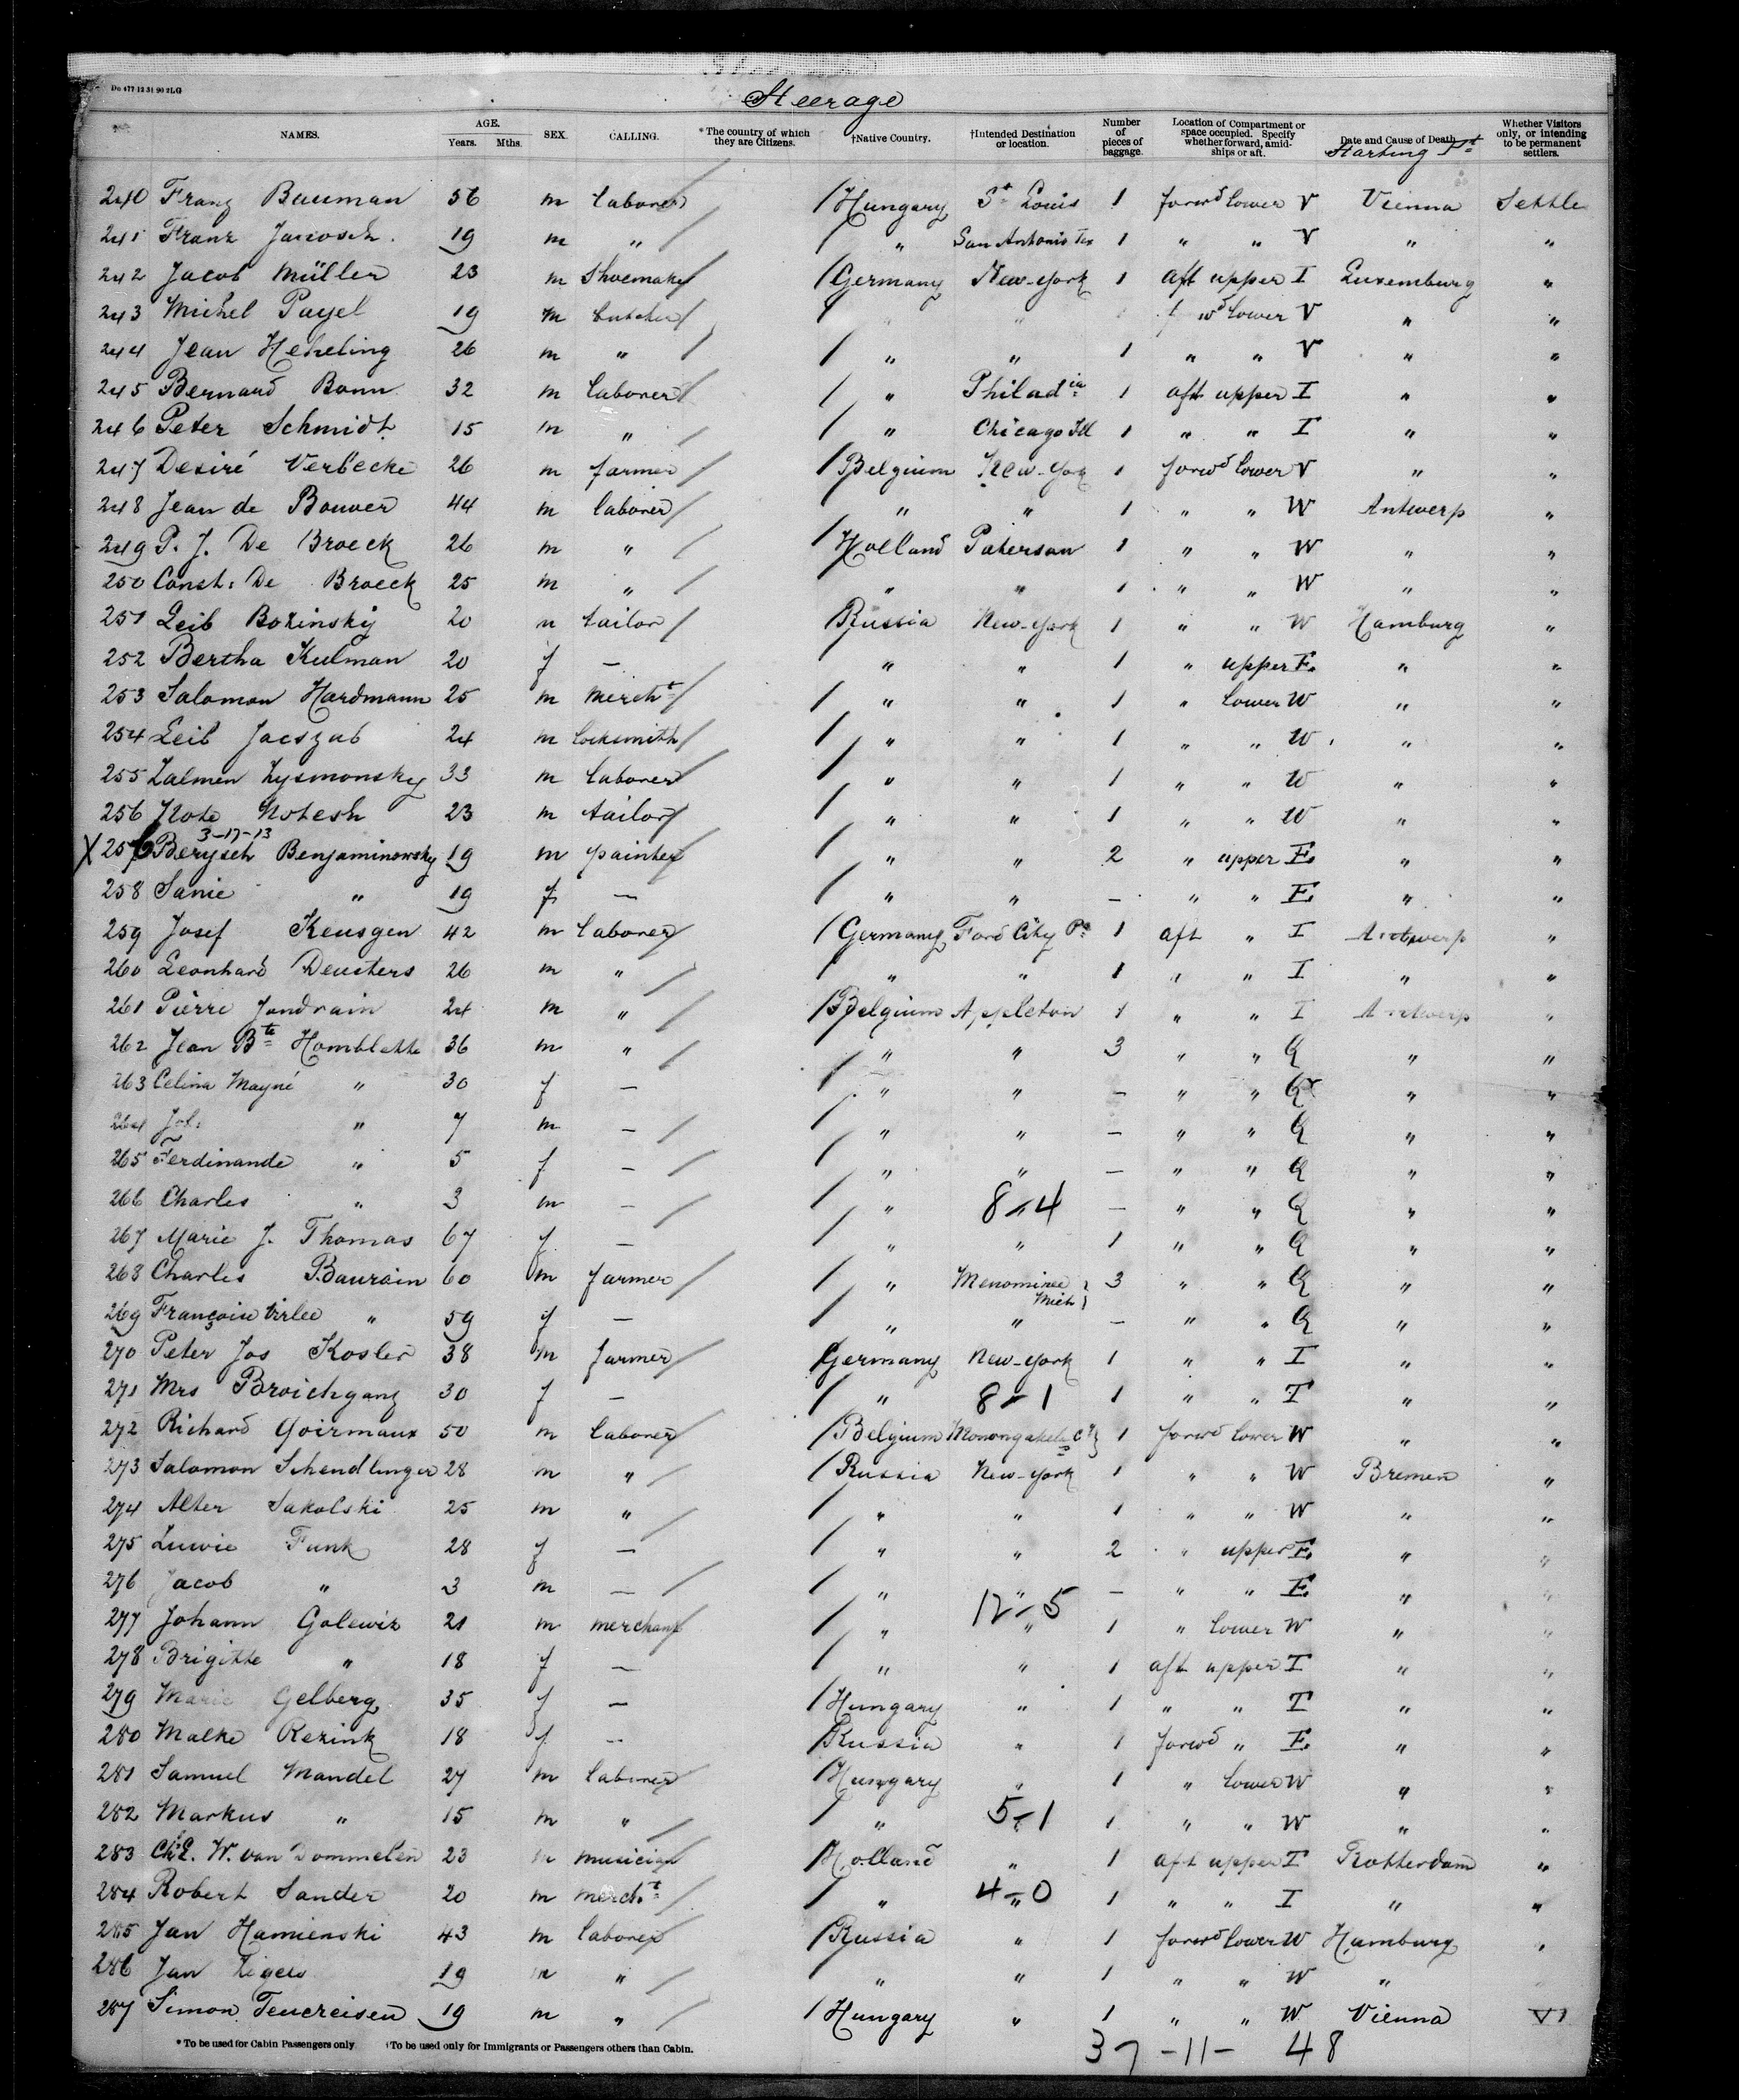 Do 477 12 31 90 2LG
Steerage
NAMES. AGE. Years. Mths. SEX. CALLING. *The country of which they are Citizens. †Native Country. †Intended Destination or location. Number of pieces of baggage. Location of Compartment or space occupied. Specify whether forward, amidships or aft. Date and Cause of Death. Whether Visitors only, or intending to be permanent settlers.
Starting Pt
240 Franz Bauman 56 m laborer / Hungary St Louis 1 forwd lower V Vienna Settle
241 Franz Janosch. 19 m " / " San Antonio Tex 1 " " V " "
242 Jacob Müller 23 m Shoemaker / Germany New-York 1 aft upper I Luxemburg "
243 Michel Payel 19 m butcher / " " f wd lower V " "
244 Jean Heheling 26 m " / " " 1 " " V " "
245 Bernard Bonn 32 m laborer / " Philadia 1 aft upper I " "
246 Peter Schmidt 15 m " / " Chicago Ill 1 " " I " "
247 Desiré Verbecke 26 m farmer / Belgium New-York 1 forwd lower V " "
248 Jean de Bouver 44 m laborer / " " 1 " " W Antwerp "
249 P. J. De Broeck 26 m " / Holland Paterson 1 " " W " "
250 Const: De Broeck 25 m " / " " 1 " " W " "
251 Leib Bozinsky 20 m tailor / Russia New-York 1 " " W Hamburg "
252 Bertha Kulman 20 f — " " 1 " upper E. " "
253 Salomon Hardmann 25 m mercht / " " 1 " lower W " "
254 Leib Jacszub 24 m locksmith / " " 1 " " W " "
255 Zalmen Lysmonsky 33 m laborer / " " 1 " " W " "
256 Note Notesh 23 m tailor / " " 1 " " W " "
3-17-13
X 257 Berysch Benjaminowsky 19 m painter / " " 2 " upper E. " "
258 Sanie " 19 f — / " " — " " E. " "
259 Josef Keusgen 42 m laborer / Germany Ford City Pa 1 aft " I Antwerp "
260 Leonhard Deusters 26 m " / " " 1 " " I " "
261 Pierre Jandrain 24 m " / Belgium Appleton 1 " " I Antwerp "
262 Jean Bte Homblette 36 m " / " " 3 " " Q " "
263 Celina Mayné " 30 f — / " " — " " Q " "
264 Jos: " 7 m — / " " — " " Q " "
265 Ferdinande " 5 f — / " " — " " Q " "
266 Charles " 3 m — / " 8-4 — " " Q " "
267 Marie J. Thomas 67 f — / " " 1 " " Q " "
268 Charles Baurain 60 m farmer / " Menominee Mich 3 " " Q " "
269 Françoise Virlee " 59 f — / " " — " " Q " "
270 Peter Jos Kosler 38 m farmer / Germany New-York 1 " " I " "
271 Mrs Broichganz 30 f — / " 8-1 1 " " T " "
272 Richard Goirmaux 50 m laborer / Belgium Monongahela Cy 1 forwd lower W " "
273 Salomon Schendlinger 28 m " / Russia New-York 1 " " W Bremen "
274 Alter Sakolski 25 m " / " " 1 " " W " "
275 Luwie Funk 28 f — / " " 2 " upper E. " "
276 Jacob " 3 m — / " " — " " E. " "
12-5
277 Johann Golewiz 21 m merchant / " " 1 " lower W " "
278 Brigitte " 18 f — / " " 1 aft upper T " "
279 Marie Gelberg 35 f — / Hungary " 1 " " T " "
280 Malke Rezink 18 f — / Russia " 1 forwd " E. " "
281 Samuel Mandel 27 m laborer / Hungary " 1 " lower W " "
282 Markus " 15 m " / " 5-1 1 " " W " "
283 W. van Dommelen 23 m musician / Holland " 1 aft upper I Rotterdam "
284 Robert Sander 20 m mercht / " 4-0 1 " " I " "
285 Jan Hamienski 43 m laborer / Russia " 1 forwd lower W Hamburg "
286 Jan Ligers 19 m " / " " 1 " " W " "
287 Simon Teuereisen 19 m " / Hungary " 1 " " W Vienna
37 -11- 48
*To be used for Cabin Passengers only †To be used only for Immigrants or Passengers others than Cabin.